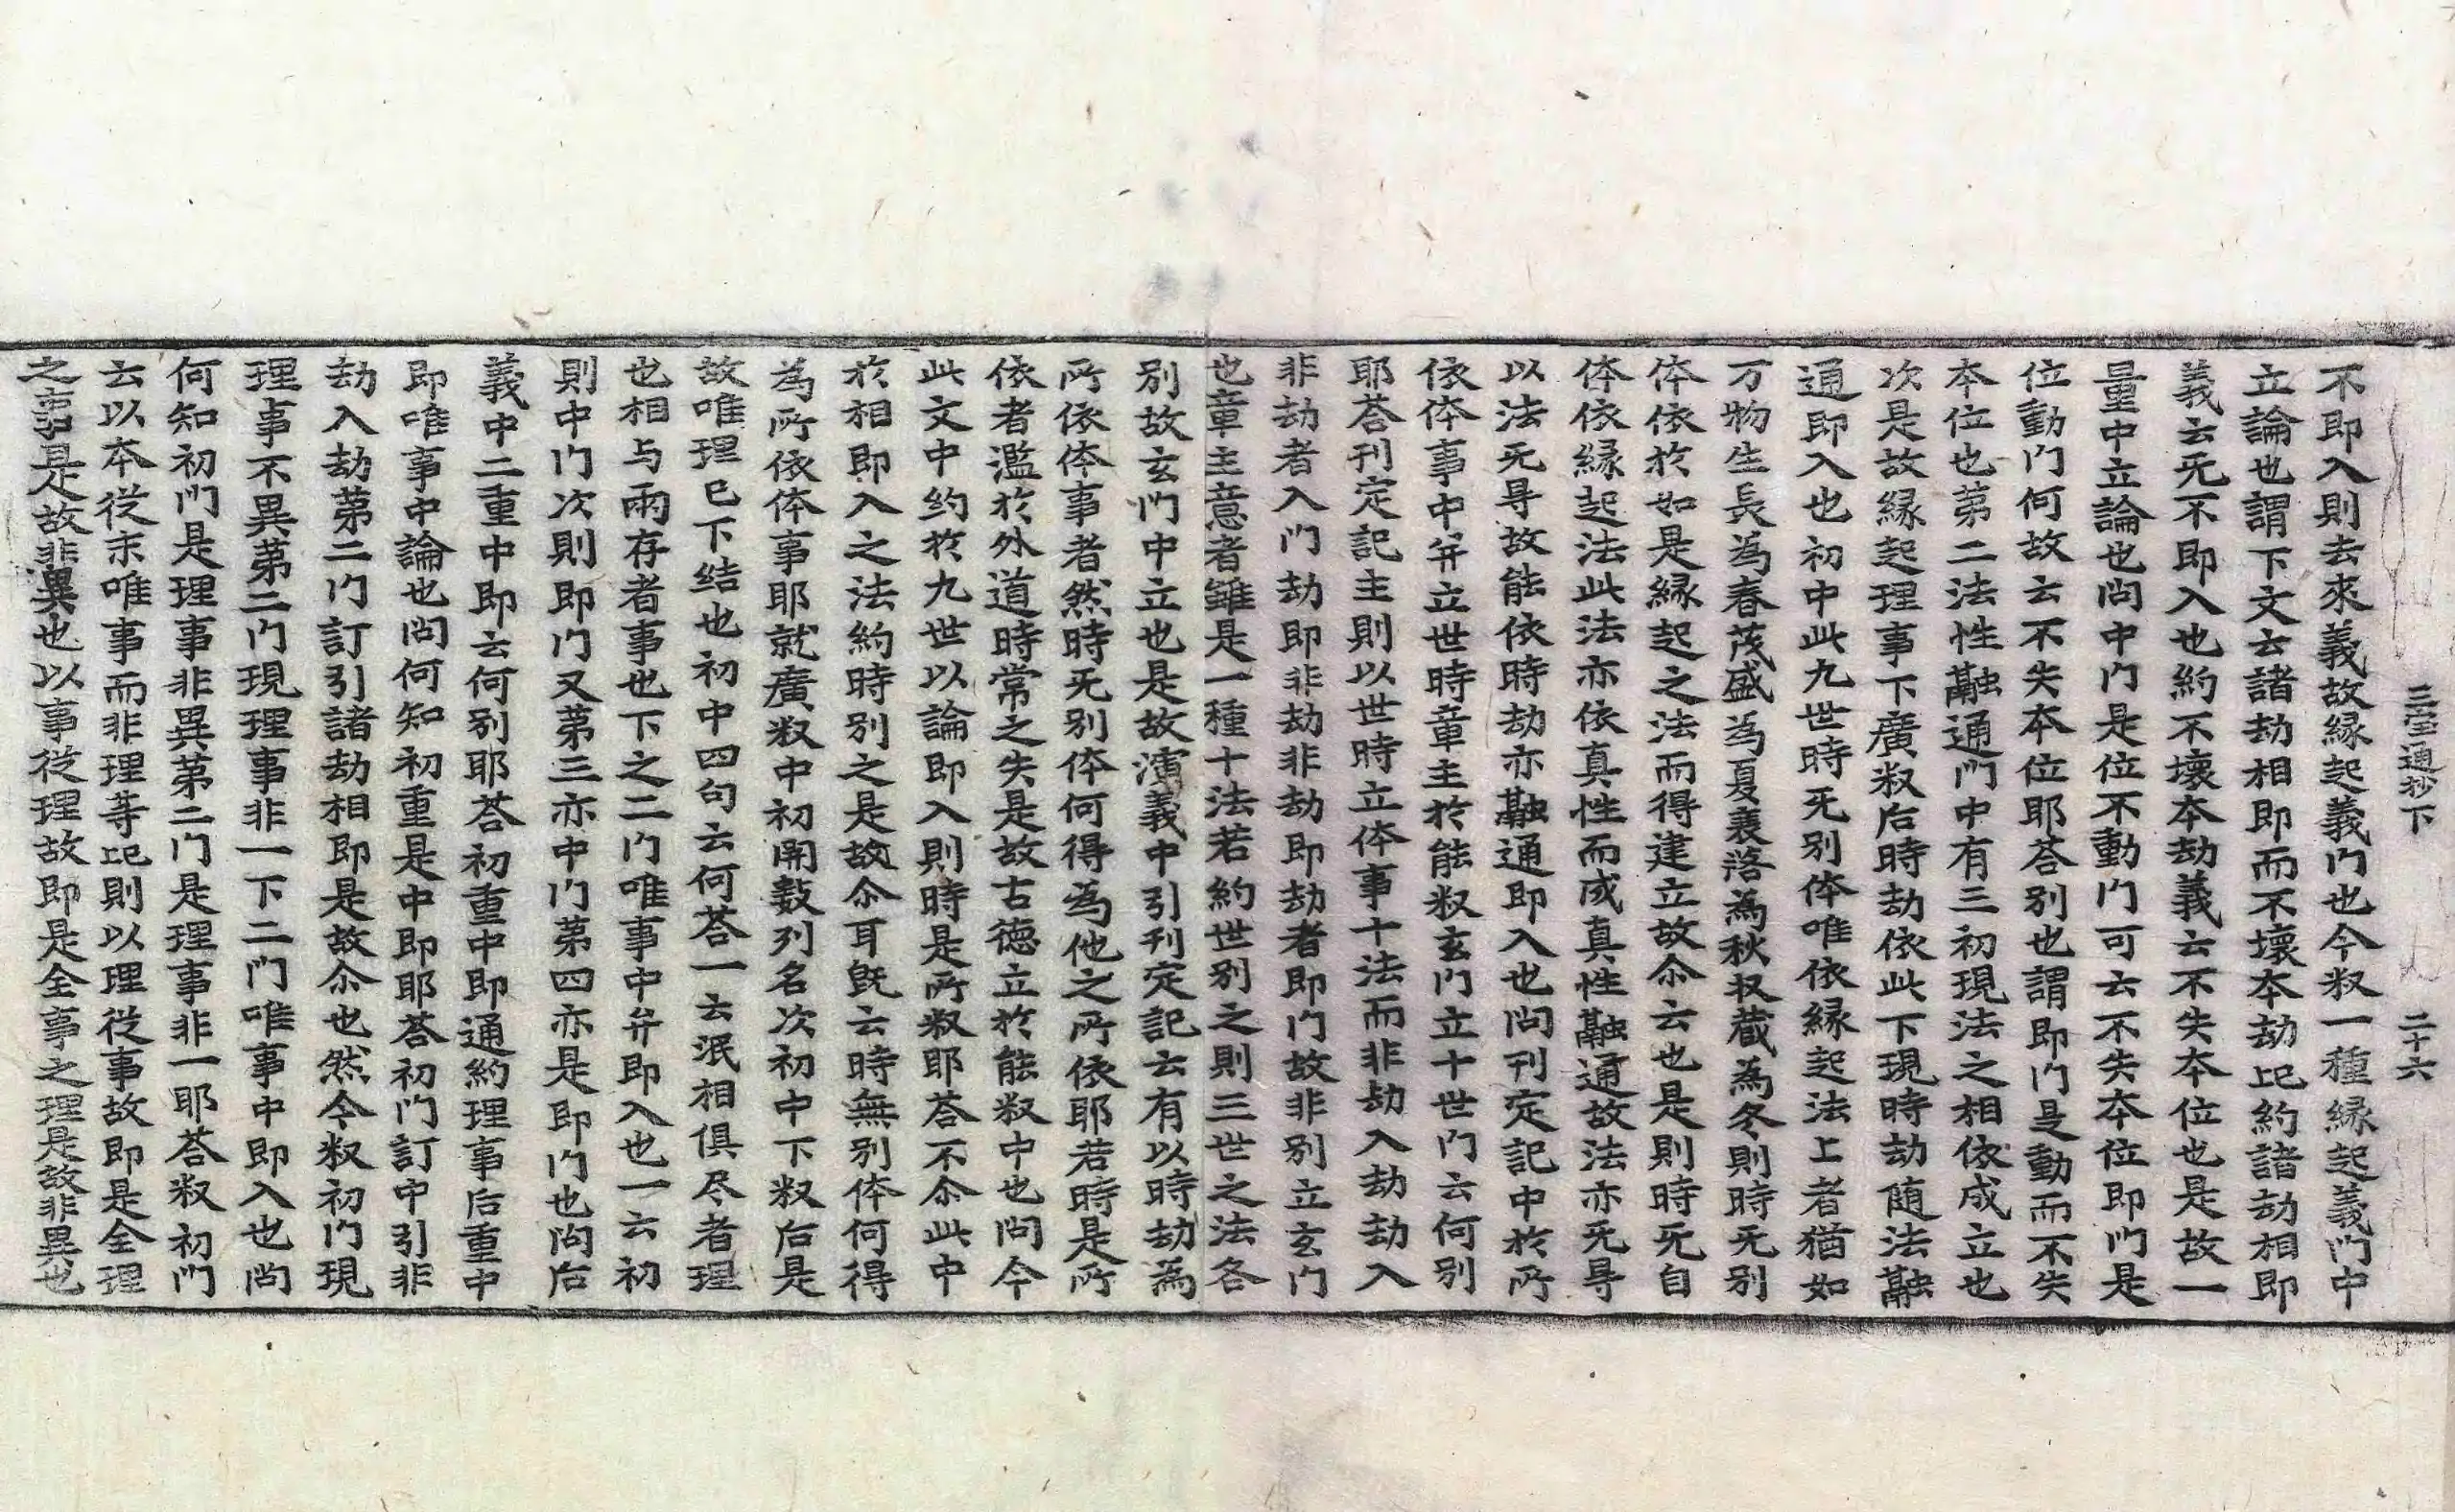 三宝通抄下　二十六
不即入則去來義故緣起義门也今釈一種緣起義门中
立論也謂下文云諸劫相即而不壞本劫記約諸劫相即
義云无不即入也約不壞本劫義云不失本位也是故一
量中立論也问中门是位不動门可云不失本位即门是
位動门何故云不失本位耶荅別也謂即门是動而不失
本位也苐二法性融通门中有三初現法之相依成立也
次是故緣起理事下廣釈后時劫依此下現時劫随法融
通即入也初中此九世時无別体唯依緣起法上者猶如
万物生長為春茂盛為夏衰落為秋収蔵為冬則時无別
体依於如是緣起之法而得建立故尒云也是則時无自
体依緣起法此法亦依真性而成真性融通故法亦无㝵
以法无㝵故能依時劫亦融通即入也问刊定記中於所
依体事中并立世時章主於能釈玄门立十世门云何別
耶荅刊定記主則以世時立体事十法而非劫入劫劫入
非劫者入门劫即非劫非劫即劫者即门故非別立玄门
也章主意者雖是一種十法若約世別之則三世之法各
別故玄门中立也是故演義中引刊定記云有以時劫為
所依体事者然時无別体何得為他之所依耶若時是所
依者濫於外道時常之失是故古德立於能釈中也问今
此文中約於九世以論即入則時是所釈耶荅不尒此中
於相即入之法約時別之是故尒耳旣云時無別体何得
為所依体事耶就廣釈中初開數列名次初中下釈后是
故唯理巳下结也初中四句云何荅一云泯相俱尽者理
也相与兩存者事也下之二门唯事中并即入也一云初
則中门次則即门又苐三亦中门苐四亦是即门也问后
義中二重中即云何別耶荅初重中即通約理事后重中
即唯事中論也问何知初重是中即耶荅初门訂中引非
劫入劫苐二门訂引諸劫相即是故尒也然今釈初门現
理事不異苐二门現理事非一下二门唯事中即入也问
何知初门是理事非異苐二门是理事非一耶荅釈初门
云以本従末唯事而非理等記則以理従事故即是全理
之事是故非異也以事従理故即是全事之理是故非異也